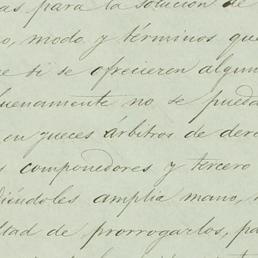 as para la solucion de
o, modo y términos que
e si se ofrecieren algun
buenamente no se pueda
en jueces árbitros de dere
s componedores y tercero
diéndoles amplia mano,
ltad de prorrogarlos, pa